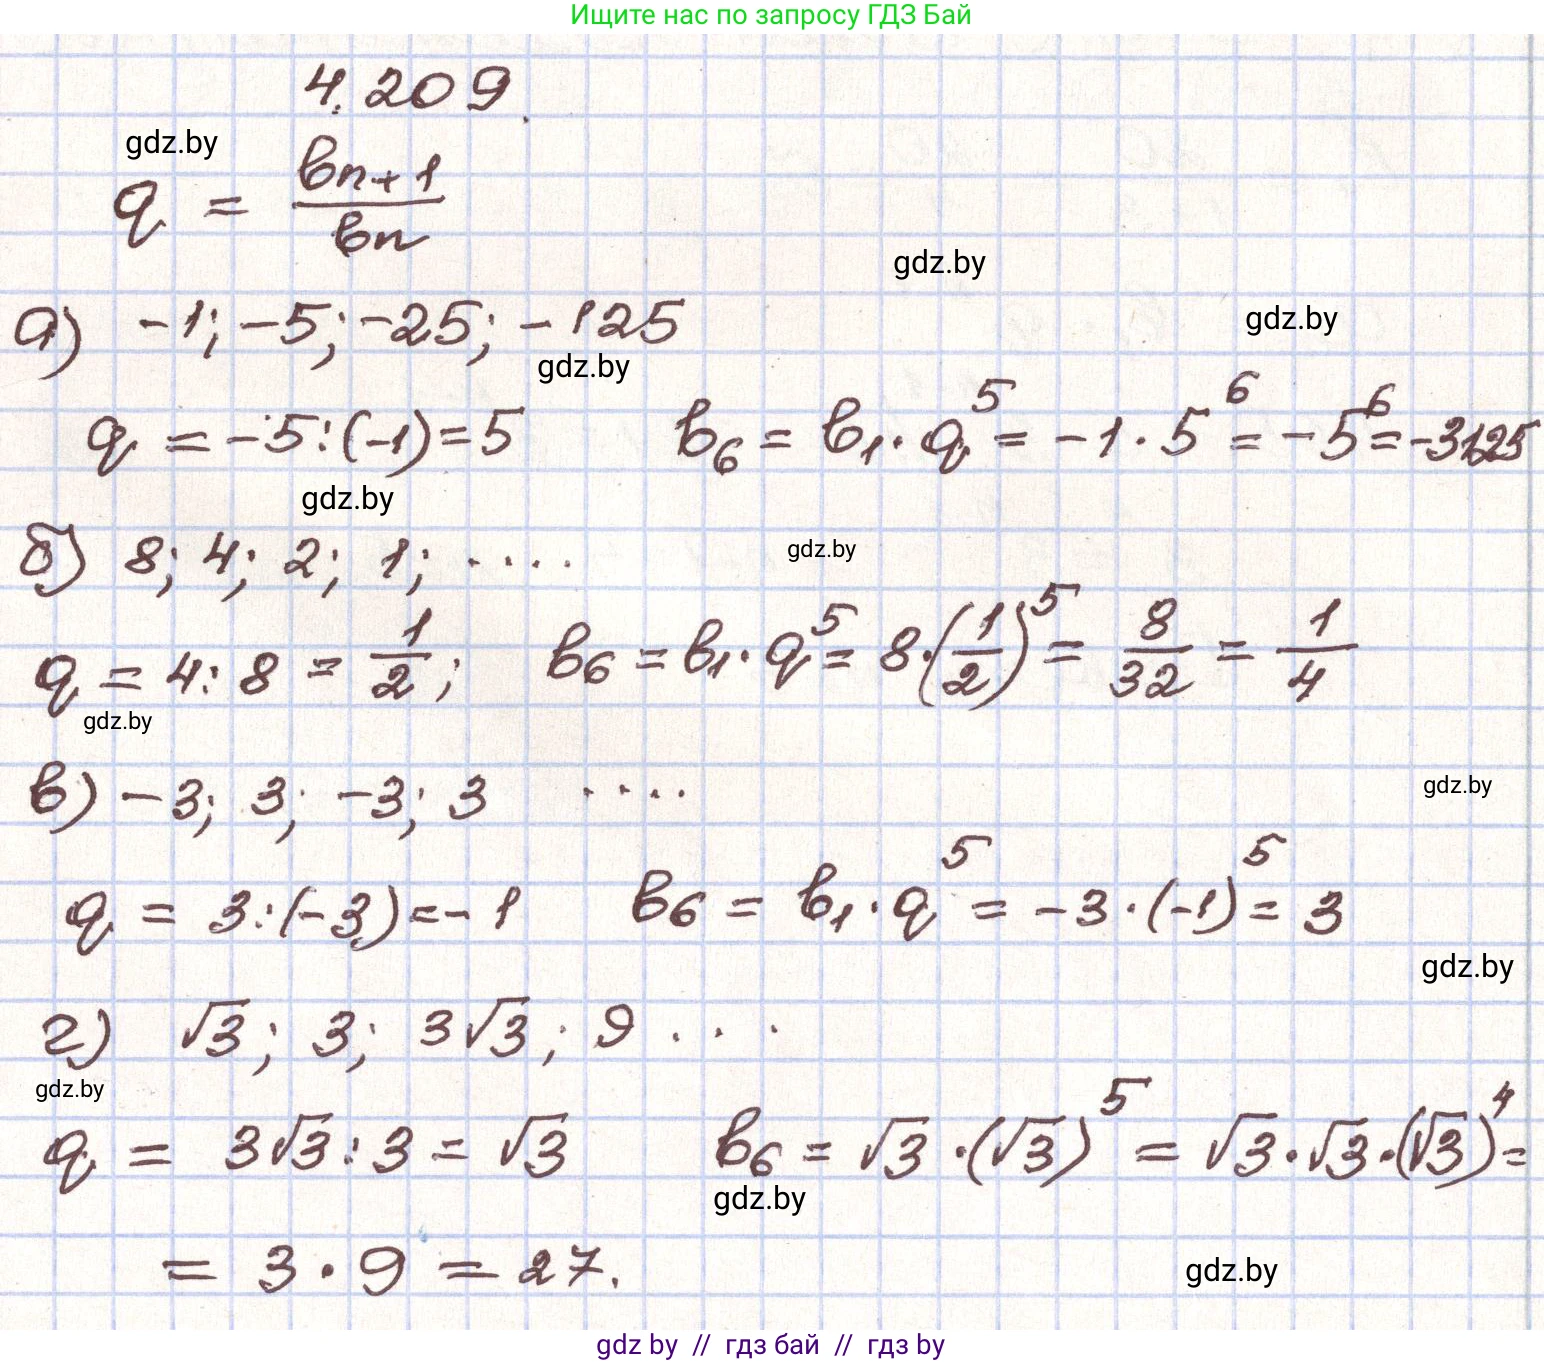 Ищите нас по запросу ГДЗ Бай
4.209.
gdz.by
q = вn+1 / вn
gdz.by
а) -1; -5; -25; -125
gdz.by
gdz.by
q = -5:(-1)=5 в₆ = в₁·q⁵ = -1·5⁶ = -5⁶ = -3125
gdz.by
б) 8; 4; 2; 1; ....
gdz.by
q = 4:8 = 1/2; в₆ = в₁·q⁵ = 8·(1/2)⁵ = 8/32 = 1/4
gdz.by
в) -3; 3; -3; 3 ....
gdz.by
q = 3:(-3)=-1 в₆ = в₁·q⁵ = -3·(-1)⁵ = 3
gdz.by
г) √3; 3; 3√3; 9 ...
gdz.by
q = 3√3:3 = √3 в₆ = √3·(√3)⁵ = √3·√3·(√3)⁴ =
gdz.by
= 3·9 = 27.
gdz.by
gdz by // гдз бай // гдз by